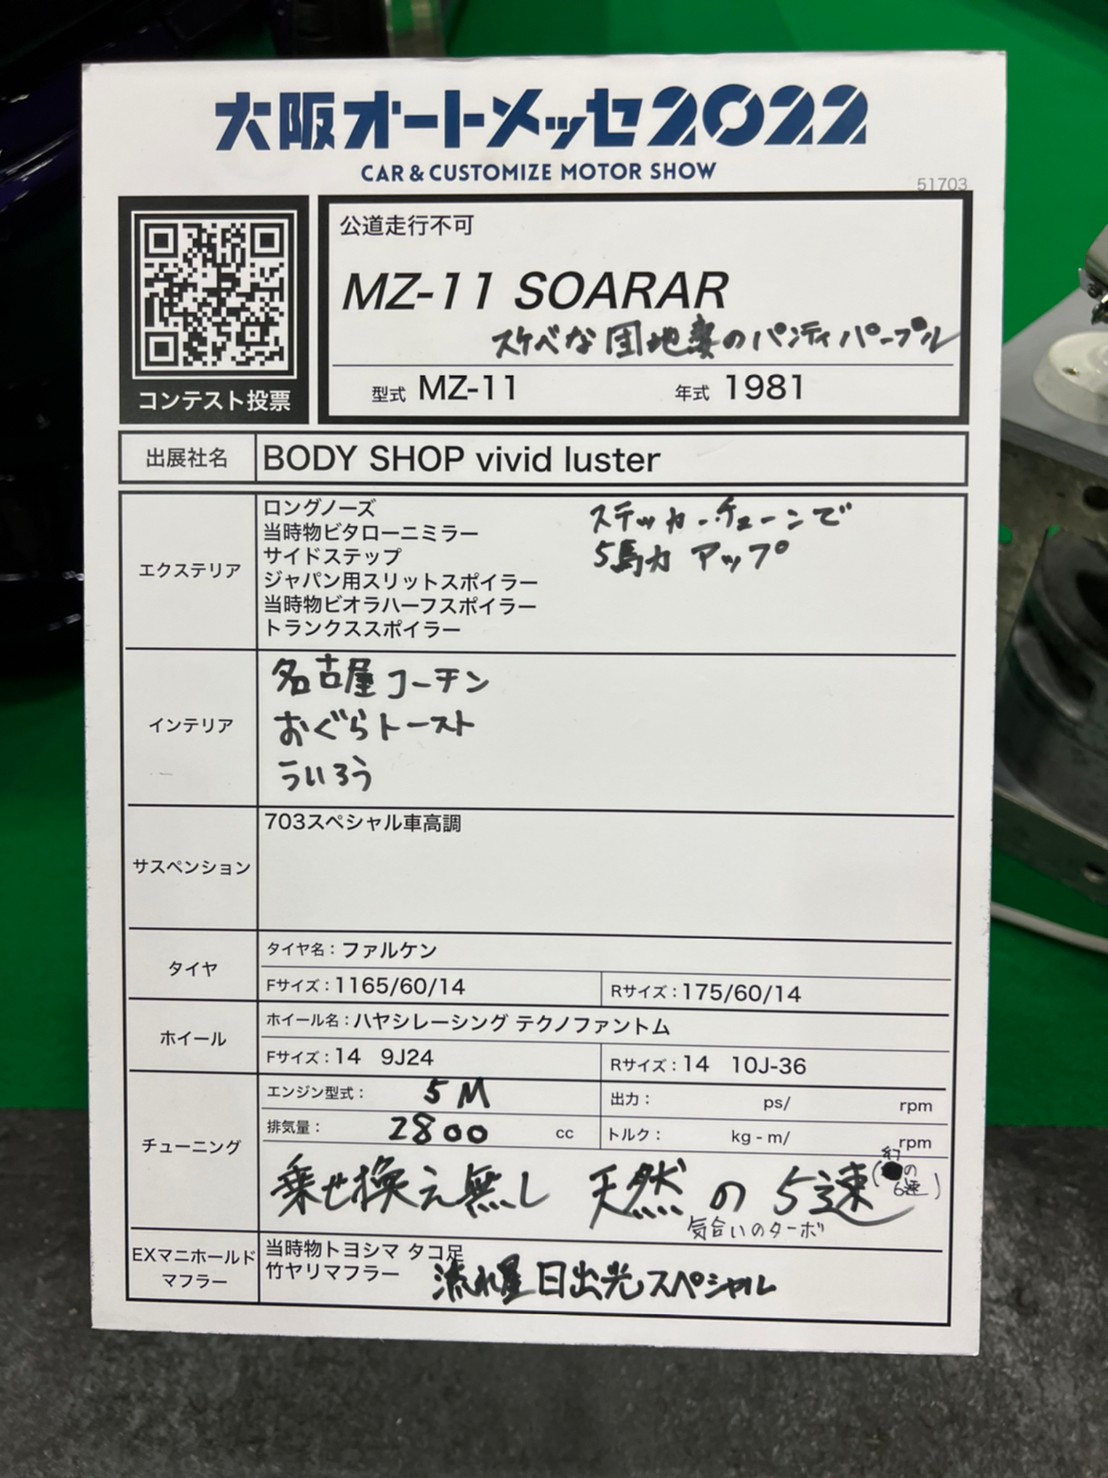 大阪オートメッセ2022
CAR & CUSTOMIZE MOTOR SHOW
51703
コンテスト投票
公道走行不可
MZ-11 SOARAR
スケベな団地妻のパンティパープル
型式 MZ-11 年式 1981
出展社名 BODY SHOP vivid luster
エクステリア
ロングノーズ
当時物ビタローニミラー
サイドステップ
ジャパン用スリットスポイラー
当時物ビオラハーフスポイラー
トランクススポイラー
ステッカーチューンで
5馬力アップ
インテリア
名古屋コーチン
おぐらトースト
ういろう
サスペンション
703スペシャル車高調
タイヤ
タイヤ名：ファルケン
Fサイズ：1165/60/14 Rサイズ：175/60/14
ホイール
ホイール名：ハヤシレーシング テクノファントム
Fサイズ：14 9J24 Rサイズ：14 10J-36
チューニング
エンジン型式： 5M 出力： ps/ rpm
排気量： 2800 cc トルク： kg-m/ rpm
乗せ換え無し 天然の5速(幻の6速)
気合いのターボ
EXマニホールド
マフラー
当時物トヨシマ タコ足
竹ヤリマフラー 流れ星日出光スペシャル